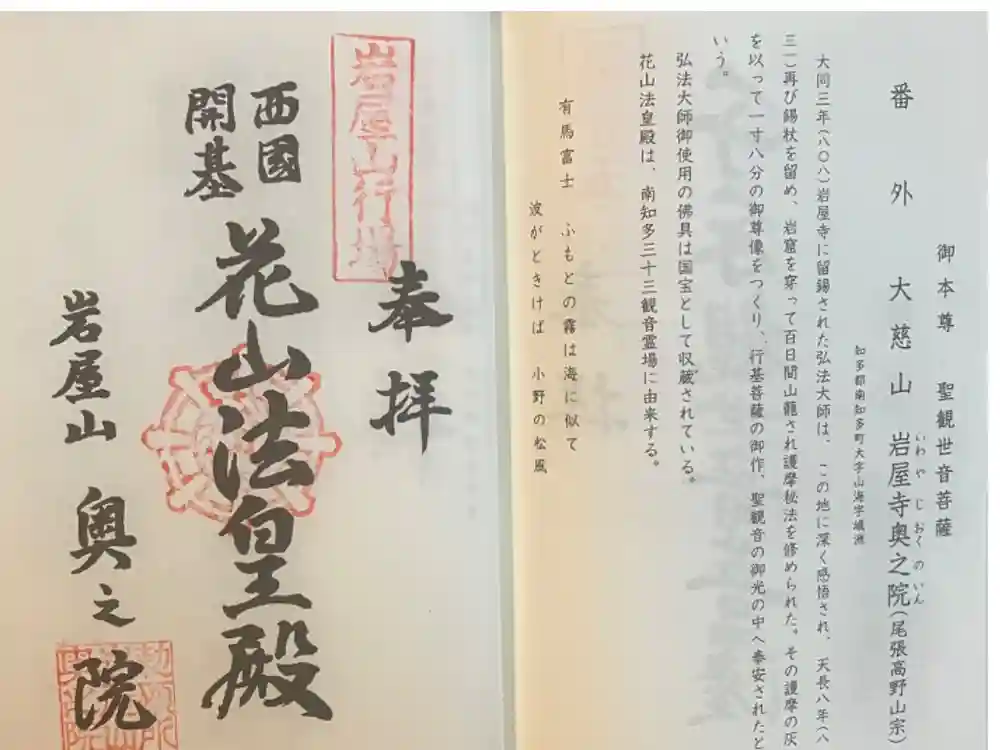 御本尊 聖観世音菩薩
番外 大慈山 岩屋寺奥之院(尾張高野山宗)
いわやじおくのいん
知多郡南知多町大字山海字城洲
大同三年(八〇八)岩屋寺に留錫された弘法大師は、この地に深く感悟され、天長八年(八
三一)再び錫杖を留め、岩窟を穿って百日間山籠され護摩秘法を修められた。その護摩の灰
を以って一寸八分の御尊像をつくり、行基菩薩の御作、聖観音の御光の中へ奉安されたと
いう。
弘法大師御使用の佛具は国宝として収蔵されている。
花山法皇殿は、南知多三十三観音霊場に由来する。
有馬富士 ふもとの霧は海に似て
波がときけば 小野の松風
奉拝
岩屋山行場
西國
開基
花山法皇殿
岩屋山 奥之院